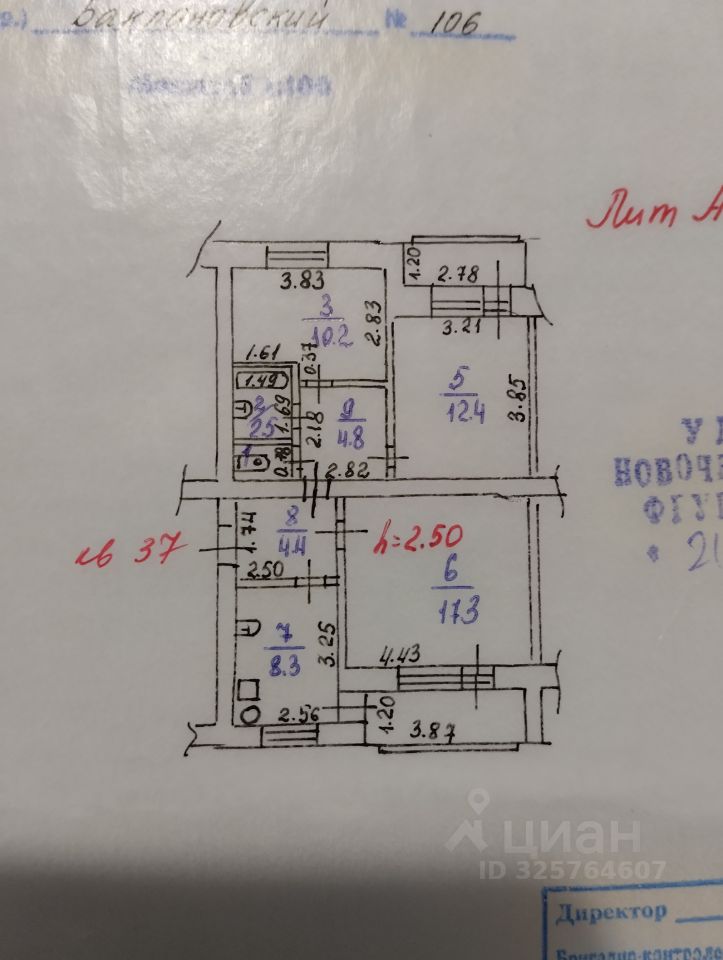 Баклановский № 106
Лит А
1.20
3.83
2.78
3
10.2
2.83
3.21
1.61
0.37
5
12.4
3.85
1.49
2
2.5
1.69
9
4.8
2.18
1
0.78
2.82
кв 37
8
4.4
1.74
h=2.50
2.50
6
17.3
7
8.3
3.25
4.43
2.56
1.20
3.87
циан
ID 325764607
Директор